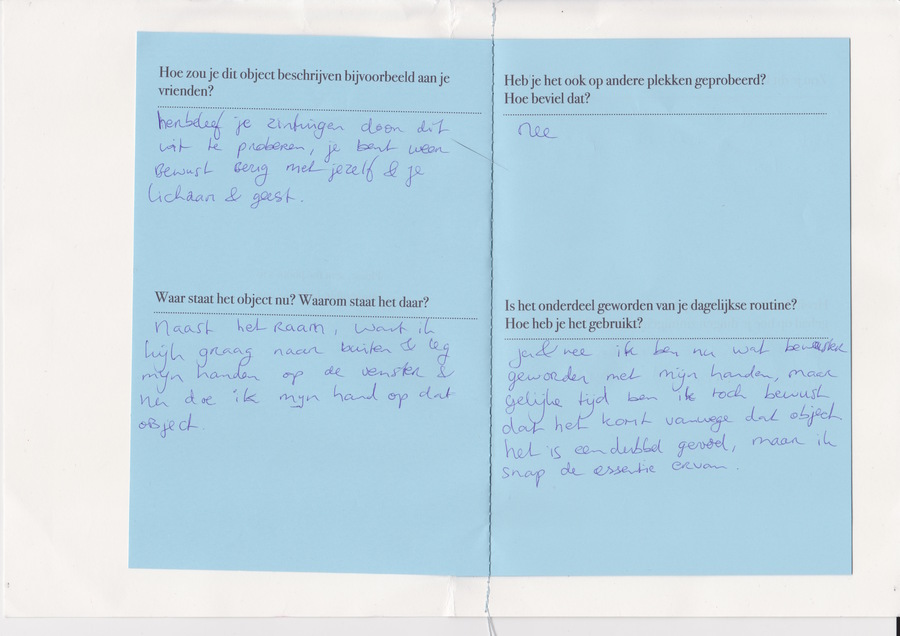 Hoe zou je dit object beschrijven bijvoorbeeld aan je
vrienden?
herbeleef je zintuigen door dit
uit te proberen, je bent weer
bewust bezig met jezelf & je
lichaam & geest.
Waar staat het object nu? Waarom staat het daar?
Naast het Raam, want ik
kijk graag naar buiten & leg
mijn handen op de venster &
nu doe ik mijn hand op dat
object.
Heb je het ook op andere plekken geprobeerd?
Hoe beviel dat?
nee
Is het onderdeel geworden van je dagelijkse routine?
Hoe heb je het gebruikt?
ja & nee ik ben nu wat bewuster
geworden met mijn handen, maar
gelijke tijd ben ik toch bewust
dat het komt vanwege dat object
het is een dubbel gevoel, maar ik
snap de essentie ervan.